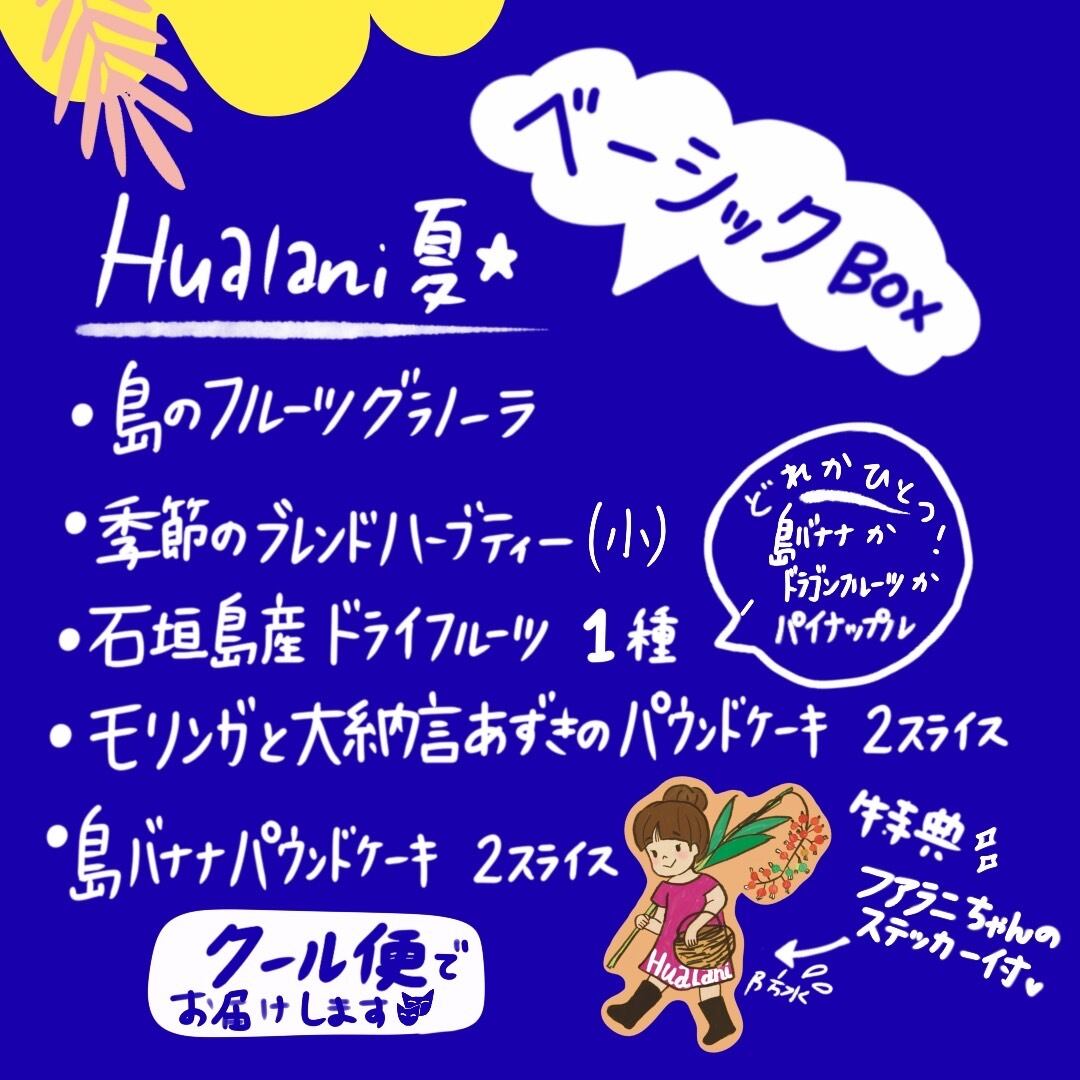 ベーシックBox
Hualani 夏★
・島のフルーツグラノーラ
・季節のブレンドハーブティー(小)
・石垣島産 ドライフルーツ 1種
どれかひとつ!
島バナナか
ドラゴンフルーツか
パイナップル
・モリンガと大納言あずきのパウンドケーキ 2スライス
・島バナナパウンドケーキ 2スライス
特典
フアラニちゃんの
ステッカー付♥
防水
Hualani
クール便で
お届けします